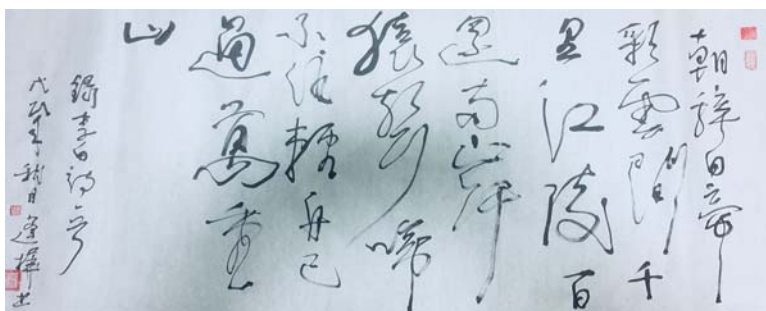 朝辭白帝
彩雲間千
里江陵一日
還兩岸
猿聲啼
不住輕舟已
過萬重
山
錄李白詩一首
戊戌年秋月逢書